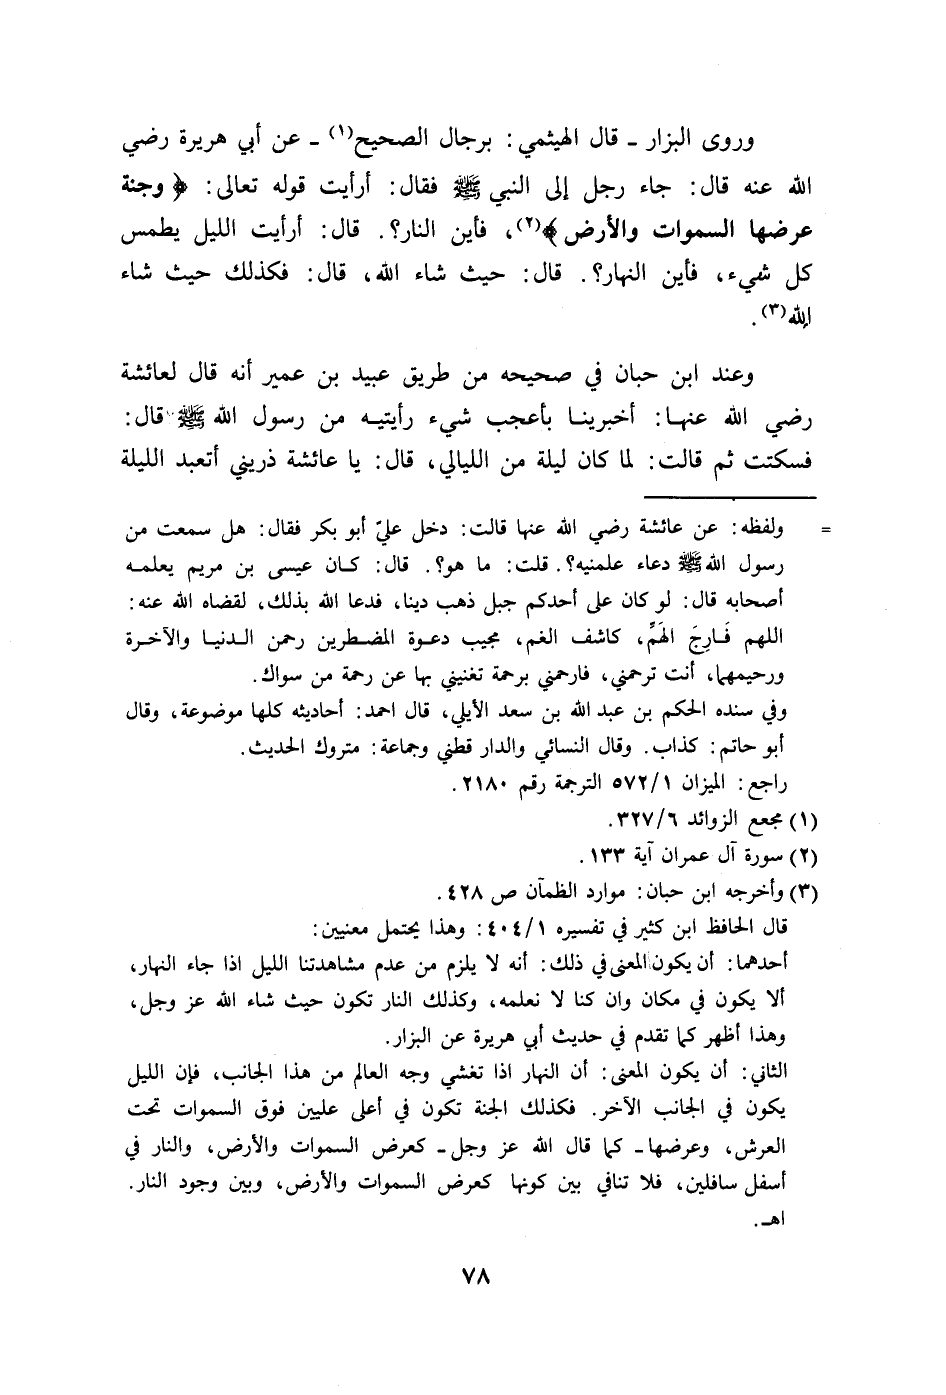 وروى البزار ـ قال الهيثمي: برجال الصحيح(١) ـ عن أبي هريرة رضي
الله عنه قال: جاء رجل إلى النبي ﷺ فقال: أرأيت قوله تعالى: ﴿وجنة
عرضها السموات والأرض﴾(٢)، فأين النار؟. قال: أرأيت الليل يطمس
كل شيء، فأين النهار؟. قال: حيث شاء الله، قال: فكذلك حيث شاء
الله(٣).
وعند ابن حبان في صحيحه من طريق عبيد بن عمير أنه قال لعائشة
رضي الله عنهـا: أخبرينـا بأعجب شيء رأيتيـه من رسول الله ﷺ قال:
فسكتت ثم قالت: لما كان ليلة من الليالي، قال: يا عائشة ذريني أتعبد الليلة
= ولفظه: عن عائشة رضي الله عنها قالت: دخل عليّ أبو بكر فقال: هل سمعت من
رسول الله ﷺ دعاء علمنيه؟. قلت: ما هو؟. قال: كـان عيسى بن مريم يعلمـه
أصحابه قال: لو كان على أحدكم جبل ذهب دينا، فدعا الله بذلك، لقضاه الله عنه:
اللهم فَـارِجَ الهَمِّ، كاشف الغم، مجيب دعـوة المضـطرين رحمن الـدنيـا والآخـرة
ورحيمهما، أنت ترحمني، فارحمني برحمة تغنيني بها عن رحمة من سواك.
وفي سنده الحكم بن عبد الله بن سعد الأيلي، قال احمد: أحاديثه كلها موضوعة، وقال
أبو حاتم: كذاب. وقال النسائي والدار قطني وجماعة: متروك الحديث.
راجع: الميزان ٥٧٢/١ الترجمة رقم ٢١٨٠.
(١) مجمع الزوائد ٣٢٧/٦.
(٢) سورة آل عمران آية ١٣٣.
(٣) وأخرجه ابن حبان: موارد الظمآن ص ٤٢٨.
قال الحافظ ابن كثير في تفسيره ٤٠٤/١: وهذا يحتمل معنيين:
أحدهما: أن يكون المعنى في ذلك: أنه لا يلزم من عدم مشاهدتنا الليل اذا جاء النهار،
ألا يكون في مكان وان كنا لا نعلمه، وكذلك النار تكون حيث شاء الله عز وجل،
وهذا أظهر كما تقدم في حديث أبي هريرة عن البزار.
الثاني: أن يكون المعنى: أن النهار اذا تغشي وجه العالم من هذا الجانب، فإن الليل
يكون في الجانب الآخر. فكذلك الجنة تكون في أعلى عليين فوق السموات تحت
العرش، وعرضها ـ كما قال الله عز وجل ـ كعرض السموات والأرض، والنار في
أسفل سافلين، فلا تنافي بين كونها كعرض السموات والأرض، وبين وجود النار.
اهـ.
٧٨